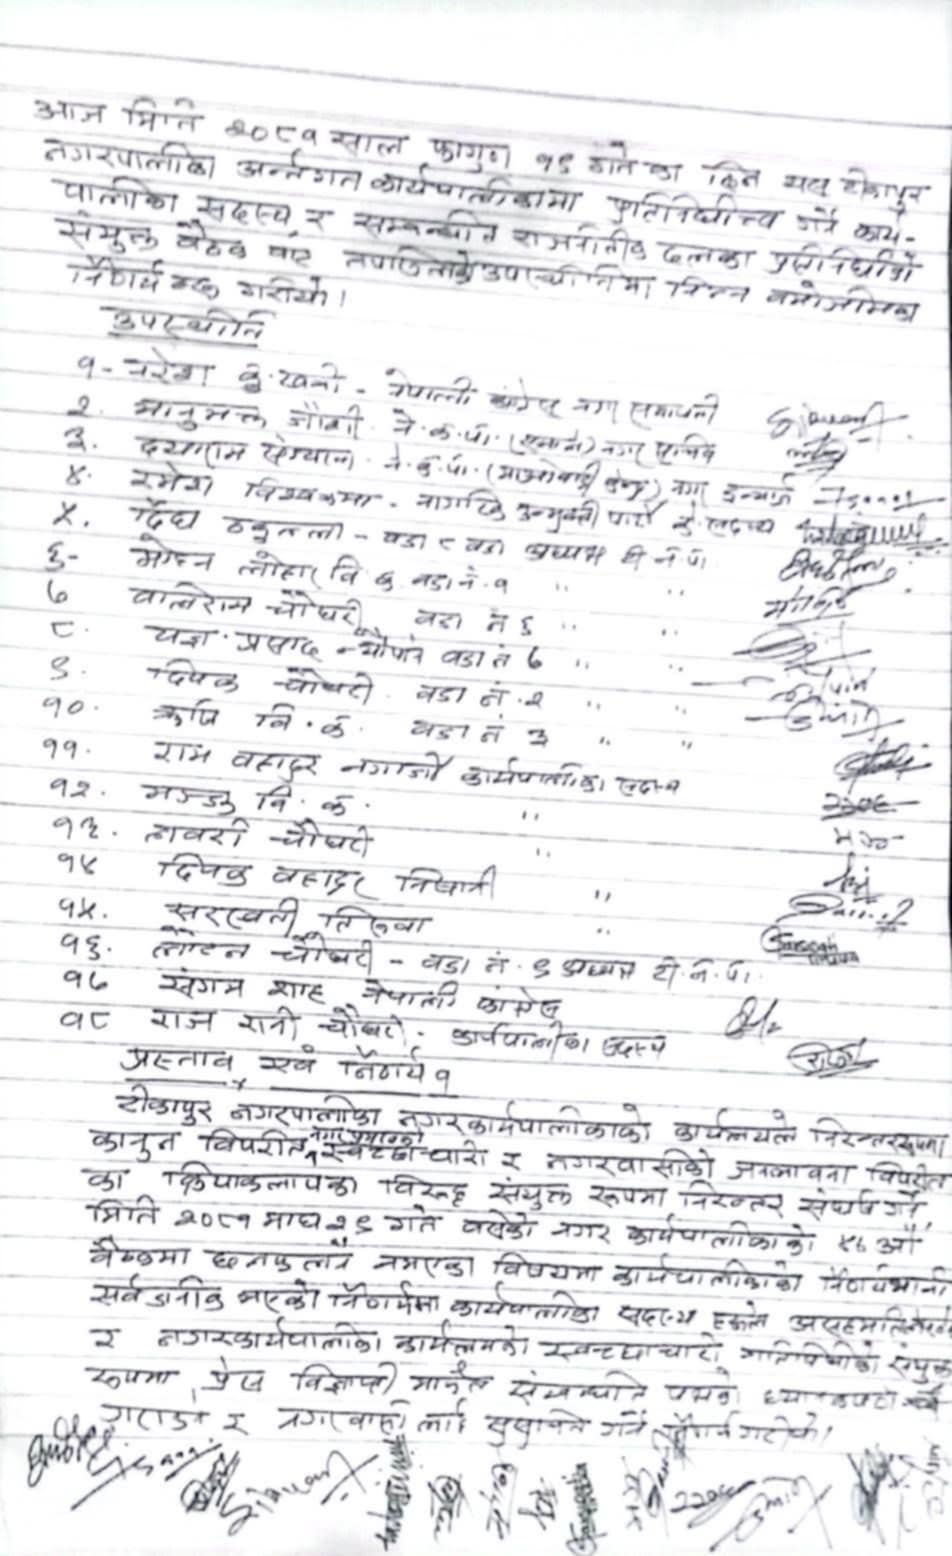 आज मिति २०८१ साल फागुन १९ गते का दिन यस टीकापुर
नगरपालीका अर्न्तगत कार्यपालीकामा प्रतिनिधीत्व गर्ने कार्य-
पालीका सदस्य र सम्बन्धीत राजनीतीक दलका प्रतिनिधीको
संयुक्त बैठक बसि तपसिलको उपस्थीतिमा निम्न बमोजिमका
निर्णय हरु गरीयो।
उपस्थीति
१- नरेश कु. खत्री - नेपाली कांग्रेस नगर सभापती
२. भानुभक्त जोशी ने.क.पा. (एमाले) नगर सचिव
३. दयाराम ने.क.पा. (माओवादी केन्द्र) नगर इन्चार्ज
४. रमेश विश्वकर्मा - नागरिक उन्मुक्ती पार्टी के. सदस्य
५. ठकुल्ला - वडा ८ वडा अध्यक्ष टी.न.पा.
६- लोहार वि.क. वडा नं. १ " "
७ वालीराम चौधरी वडा नं ५ " "
८. यज्ञ प्रसाद वडा नं ७ " "
९. दिपक चौधरी वडा नं. २ " "
१०. ऋषि वि.क. वडा नं ३ " "
११. राम बहादुर कार्यपालीका सदस्य
१२. मञ्जु वि.क. "
१३. चौधरी "
१४ दिपक बहादुर "
१५. सरस्वती "
१६. लौटन चौधरी - वडा नं. ९ अध्यक्ष टी.न.पा.
१७ संगम शाह नेपाली कांग्रेस
१८ राज रानी चौधरी - कार्यपालीका सदस्य
प्रस्ताव एवं निर्णय १
टीकापुर नगरपालीका नगरकार्यपालीकाको कार्यलयले निरन्तररुपमा
कानुन विपरीत नगर प्रमुखको स्वेच्छाचारी र नगरवासीको जनभावना विपरीत
का क्रियाकलापका विरुद्ध संयुक्त रूपमा निरन्तर संघर्ष गर्ने
मिति २०८१ माघ २९ गते बसेको नगर कार्यपालीकाको ४८ औं
बैठकमा छलफलनै नभएका विषयमा कार्यपालीकाको निर्णयभनी
सर्वजनीक भएको निर्णयमा कार्यपालीका सदस्य हरुले असहमति
र नगरकार्यपालीका कार्यलयको स्वेच्छाचारी गतिविधीको संयुक्त
रूपमा प्रेस विज्ञाप्ती मार्फत संम्बन्धीत पक्षको ध्यानाकर्षण
गराउने र नगरवासी लाई सुसुचित गर्ने निर्णय गरीयो।